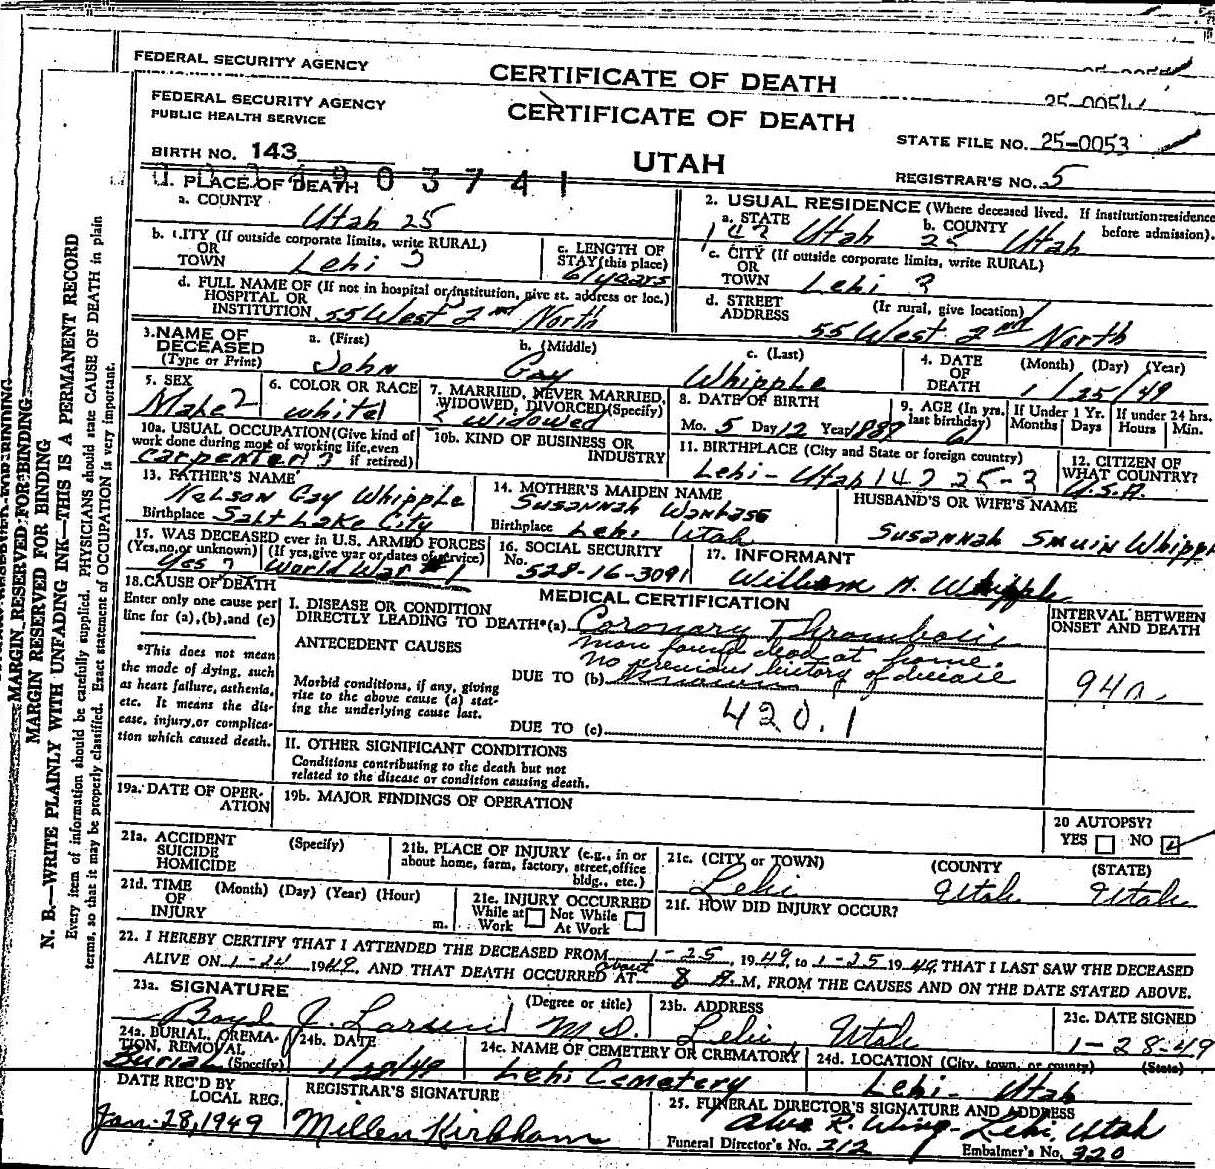 FEDERAL SECURITY AGENCY
CERTIFICATE OF DEATH
FEDERAL SECURITY AGENCY
PUBLIC HEALTH SERVICE
CERTIFICATE OF DEATH
STATE FILE NO. 25-0053
BIRTH NO. 143
UTAH
REGISTRAR'S NO. 5
1. PLACE OF DEATH
a. COUNTY
Utah 25
2. USUAL RESIDENCE (Where deceased lived. If institution: residence before admission).
a. STATE b. COUNTY
143 Utah 25 Utah
b. CITY (If outside corporate limits, write RURAL)
OR
TOWN Lehi 3
c. LENGTH OF
STAY (this place)
61 years
c. CITY (If outside corporate limits, write RURAL)
OR
TOWN Lehi 3
d. FULL NAME OF (If not in hospital or institution, give st. address or loc.)
HOSPITAL OR
INSTITUTION 55 West 2nd North
d. STREET (If rural, give location)
ADDRESS 55 West 2nd North
3. NAME OF
DECEASED
(Type or Print)
a. (First) b. (Middle) c. (Last)
John Gay Whipple
4. DATE (Month) (Day) (Year)
OF
DEATH 1/25/49
5. SEX
Male 2
6. COLOR OR RACE
white 1
7. MARRIED, NEVER MARRIED,
WIDOWED, DIVORCED (Specify)
Widowed
8. DATE OF BIRTH
Mo. 5 Day 12 Year 1887
9. AGE (In yrs. last birthday)
61
If Under 1 Yr. Months Days
If under 24 hrs. Hours Min.
10a. USUAL OCCUPATION (Give kind of
work done during most of working life, even
if retired)
carpenter
10b. KIND OF BUSINESS OR
INDUSTRY
11. BIRTHPLACE (City and State or foreign country)
Lehi - Utah 143 25-3
12. CITIZEN OF
WHAT COUNTRY?
U.S.A.
13. FATHER'S NAME
Nelson Gay Whipple
Birthplace Salt Lake City
14. MOTHER'S MAIDEN NAME
Susannah
Birthplace Lehi Utah
HUSBAND'S OR WIFE'S NAME
Susannah Smuin Whippl
15. WAS DECEASED ever in U.S. ARMED FORCES
(Yes, no, or unknown) (If yes, give war or dates of service)
Yes World War #1
16. SOCIAL SECURITY
No. 528-16-3091
17. INFORMANT
William A. Whipple
18. CAUSE OF DEATH
Enter only one cause per
line for (a), (b), and (c)
*This does not mean
the mode of dying, such
as heart failure, asthenia,
etc. It means the dis-
ease, injury, or complica-
tion which caused death.
MEDICAL CERTIFICATION
INTERVAL BETWEEN
ONSET AND DEATH
I. DISEASE OR CONDITION
DIRECTLY LEADING TO DEATH*(a) Coronary Thrombosis
ANTECEDENT CAUSES
man found dead at home.
no previous history of disease
Morbid conditions, if any, giving
rise to the above cause (a) stat-
ing the underlying cause last.
DUE TO (b) known
94a
DUE TO (c)
420.1
II. OTHER SIGNIFICANT CONDITIONS
Conditions contributing to the death but not
related to the disease or condition causing death.
19a. DATE OF OPER-
ATION
19b. MAJOR FINDINGS OF OPERATION
20 AUTOPSY?
YES NO
21a. ACCIDENT (Specify)
SUICIDE
HOMICIDE
21b. PLACE OF INJURY (e.g., in or
about home, farm, factory, street, office
bldg., etc.)
21c. (CITY or TOWN) (COUNTY (STATE)
Lehi Utah Utah
21d. TIME (Month) (Day) (Year) (Hour)
OF
INJURY m.
21e. INJURY OCCURRED
While at Not While
Work At Work
21f. HOW DID INJURY OCCUR?
22. I HEREBY CERTIFY THAT I ATTENDED THE DECEASED FROM 1-25, 1949, to 1-25 1949, THAT I LAST SAW THE DECEASED
ALIVE ON 1-24 1949, AND THAT DEATH OCCURRED about AT 8 A. M, FROM THE CAUSES AND ON THE DATE STATED ABOVE.
23a. SIGNATURE (Degree or title)
Boyd J. Larsen M.D.
23b. ADDRESS
Lehi, Utah
23c. DATE SIGNED
1-28-49
24a. BURIAL, CREMA-
TION, REMOVAL
(Specify)
Burial
24b. DATE
1/28/49
24c. NAME OF CEMETERY OR CREMATORY
Lehi Cemetery
24d. LOCATION (City, town, or county) (State)
Lehi - Utah
DATE REC'D BY
LOCAL REG.
Jan. 28, 1949
REGISTRAR'S SIGNATURE
Millen Kirkham
25. FUNERAL DIRECTOR'S SIGNATURE AND ADDRESS
Alva R. Wing - Lehi, Utah
Funeral Director's No. 212 Embalmer's No. 320
MARGIN RESERVED FOR BINDING
MARGIN RESERVED FOR BINDING
N. B.—WRITE PLAINLY WITH UNFADING INK—THIS IS A PERMANENT RECORD
Every item of information should be carefully supplied. PHYSICIANS should state CAUSE OF DEATH in plain
terms, so that it may be properly classified. Exact statement of OCCUPATION is very important.